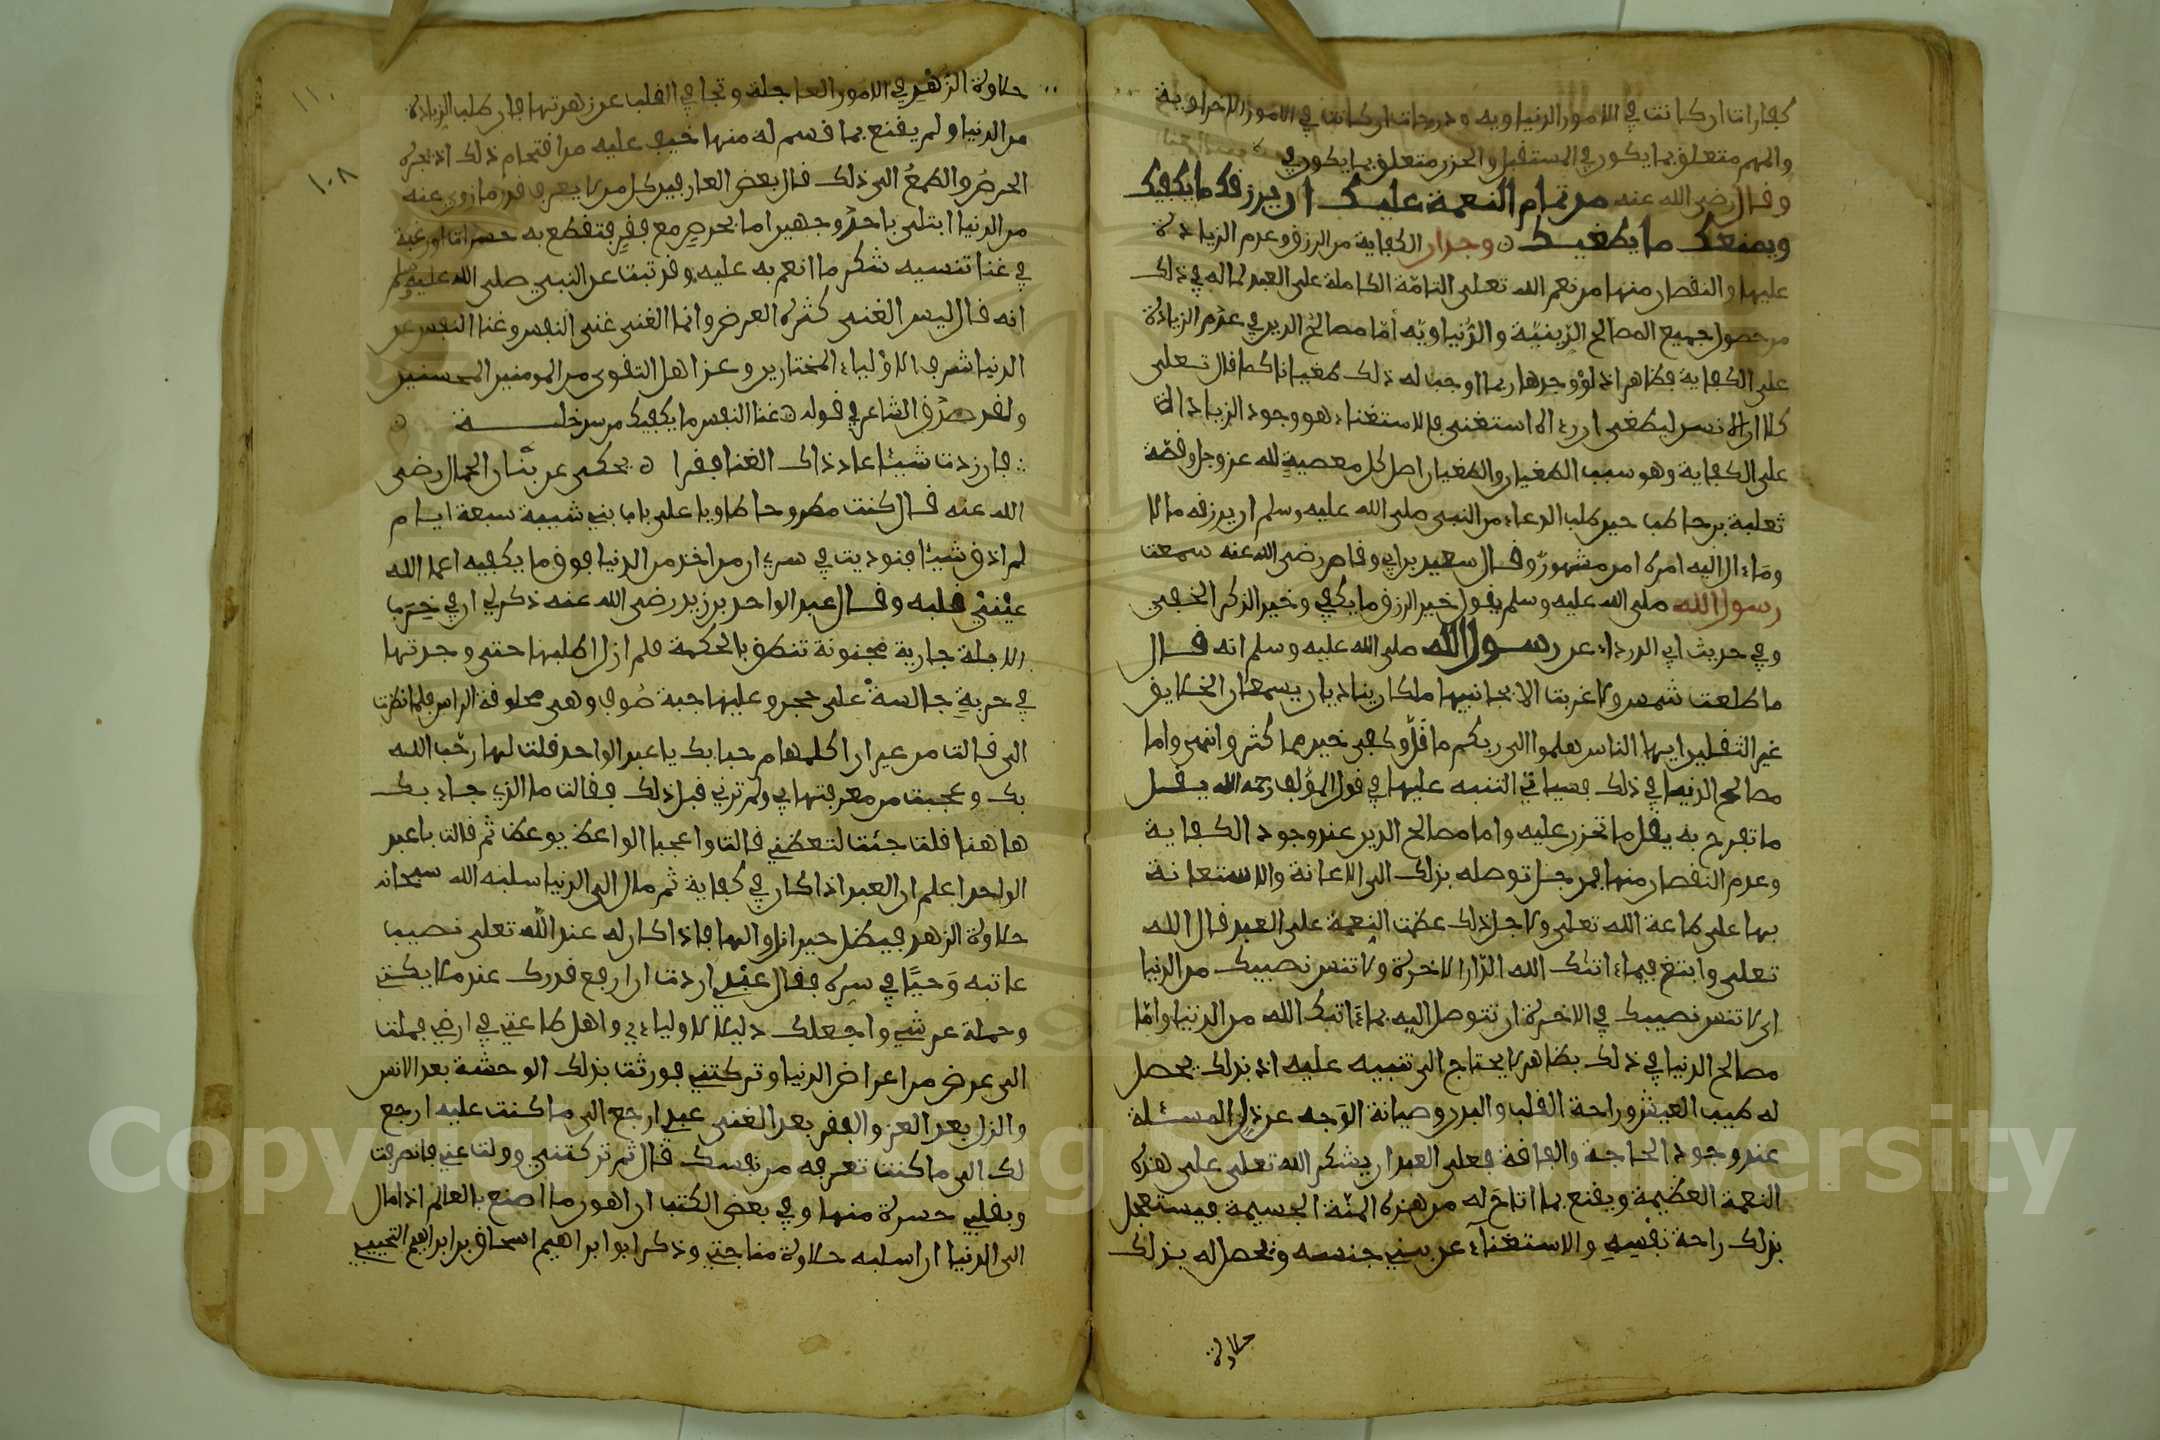 كفارات ان كانت في الامور الدنياويه ودرجات ان كانت في الامور الاخراوية
والهم متعلق بما يكون في المستقبل والحزن متعلق بما يكون في
وقال رضي الله عنه من تمام النعمة عليك ان يرزقك ما يكفيك
ويمنعك ما يطغيك وجدان الكفاية من الرزق وعدم الزيادة
عليها والنقصان منها من نعم الله تعلى التامة الكاملة على العبد لما له في ذلك
من حصول جميع المصالح الدينية والدنياوية أما مصالح الدين في عدم الزيادة
على الكفاية فظاهر اذ لو وجدها ربما اوجب له ذلك طغيانا كما قال تعلى
كلا ان الانسن ليطغى ان رءاه استغنى فالاستغناء هو وجود الزيادة
على الكفاية وهو سبب الطغيان والطغيان اصل كل معصية لله عز وجل وقصة
ثعلبة بن حاطب حين طلب الدعاء من النبي صلى الله عليه وسلم ان يرزقه مالا
وماءال اليه امره امر مشهور وقال سعيد بن ابي وقاص رضي الله عنه سمعت
رسول الله صلى الله عليه وسلم يقول خير الرزق ما يكفي وخير الذكر الخفي
وفي حديث ابي الدرداء عن رسول الله صلى الله عليه وسلم انه قال
ما طلعت شمس ولا غربت الا بجانبيها ملكان يناديان يسمعان الخلايق
غير الثقلين ايها الناس هلموا الى ربكم ما قل وكفى خير مما كثر والهى واما
مصالح الدنيا في ذلك فسياتي التنبيه عليها في قول المؤلف رحمه الله يقل
ما تفرح به يقل ما تحزن عليه واما مصالح الدين عند وجود الكفاية
وعدم النقصان منها فمن جل توصله بذلك الى الاعانة والاستعانة
بها على طاعة الله تعلى ولاجل ذلك عظمت النعمة على العبد قال الله
تعلى وابتغ فيما ءاتىك الله الدار الاخرة ولا تنس نصيبك من الدنيا
اي لا تنس نصيبك في الاخرة ان تتوصل اليه بما ءاتىك الله من الدنيا واما
مصالح الدنيا في ذلك بظاهر لا يحتاج الى تنبيه عليه اذ بذلك يحصل
له طيب العيش وراحة القلب والبدن وصيانة الوجه عن ذل المسئلة
عند وجود الحاجة والفاقة فعلى العبد ان يشكر الله تعلى على هذه
النعمة العظيمة ويقنع بما اتاح له من هذه المنة الجسيمة فيستعجل
بذلك راحة نفسه والاستغناء عن بني جنسه وتحصل له بذلك
حلاوة
حلاوة الزهد في الامور العاجلة وتجافي القلب عن زهرتها فان طلب الزيادة
من الدنيا ولم يقنع بما قسم له منها خيف عليه من اقتحام ذلك اذ يجره
الحرص والطمع الى ذلك قال بعض العارفين كل من لا يعرف قدر ما زوي عنه
من الدنيا ابتلي باحد وجهين اما بحرص مع فقر فتقطع به حسرات او رغبة
في غنا تنسيه شكر ما انعم به عليه وقد ثبت عن النبي صلى الله عليه وسلم
انه قال ليس الغنى كثرة العرض وانما الغنى غنى النفس وغنا النفس عن
الدنيا شرف الاولياء المختارين وعز اهل التقوى من المومنين المحسنين
ولقد صدق الشاعر في قوله غنا النفس ما يكفيك من سد خلة
فان زدت شيئا عاد ذاك الغنا فقرا يحكى عن بنان الحمال رضي
الله عنه قال كنت مطروحا طاويا على باب بني شيبة سبعة ايام
لم اذق شيئا فنوديت في سري ان من اخذ من الدنيا فوق ما يكفيه اعما الله
عيني قلبه وقال عبد الواحد بن زيد رضي الله عنه ذكر لي ان في خرب
الابلة جارية مجنونة تنطق بالحكمة فلم ازل اطلبها حتى وجدتها
في خربة جالسة على حجر وعليها جبة صوف وهي محلوقة الراس فلما نظرت
الي قالت من غير ان اكلمها مرحبا بك يا عبد الواحد فقلت لها رحب الله
بك وعجبت من معرفتها بي ولم ترني قبل ذلك فقالت ما الذي جاء بك
هاهنا قلت جئت لتعظني قالت واعجبا لواعظ يوعظ ثم قالت يا عبد
الواحد اعلم ان العبد اذا كان في كفاية ثم مال الى الدنيا سلبه الله سبحانه
حلاوة الزهد فيظل حيرانا والها فاذا كان له عند الله تعلى نصيب
عاتبه وحيا في سره فقال عبدي اردت ان ارفع قدرك عند ملايكتي
وحملة عرشي واجعلك دليلا لاوليائي واهل طاعتي في ارضي فملت
الى عرض من اعراض الدنيا وتركتني فورثت بذلك الوحشة بعد الانس
والذل بعد العز والفقر بعد الغنى عبدي ارجع الى ما كنت عليه ارجع
لك الى ما كنت تعرفه من نفسك قال ثم تركتني وولت عني فانصرفت
وبقلبي حسرة منها وفي بعض الكتب ان اهون ما اصنع بالعالم اذا مال
الى الدنيا ان اسلبه حلاوة مناجتي وذكر ابو ابراهيم اسحاق بن ابراهيم التجيبي
١١٠
١٠٨
Copyright © King Saud University